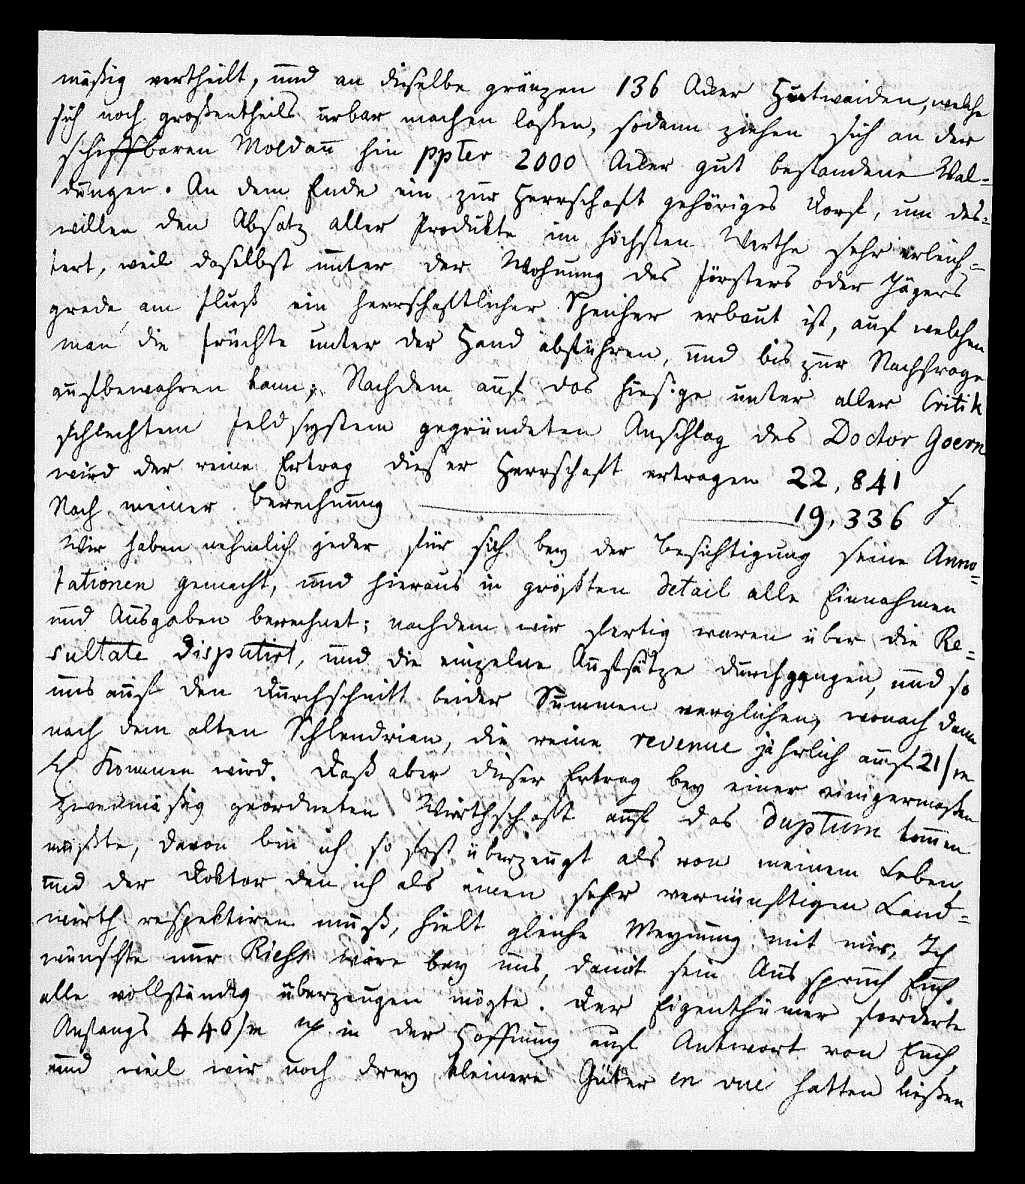 mäßig vertheilt, und an dieselbe gränzen 136 Acker Hutwaiden, welche
sich noch großentheils urbar machen lassen, sodann ziehen sich an der
schiffbaren Moldau hin ppter 2000 Acker gut bestandene Wal-
dungen. An dem Ende ein zur Herrschaft gehöriges Dorf, um des-
willen den Absatz aller Produkte im höchsten Werthe sehr erleich-
tert, weil daselbst unter der Wohnung des Försters oder Jägers
grade am Fluß ein herrschaftlicher Speicher erbaut ist, auf welchen
man die Früchte unter der Hand abführen, und bis zur Nachfrage
aufbewahren kann; Nachdem auf das hiesige unter aller Critik
schlechtem Feldsystem gegründeten Anschlag des Doctor Goern
wird der reine Ertrag dieser Herrschaft ertragen 22,841
Nach meiner Berechnung 19,336 f
Wir haben nehmlich jeder für sich bey der Besichtigung seine Anno-
tationen gemacht, und hieraus in größten Detail alle Einnahmen
und Ausgaben berechnet; nachdem wir fertig waren über die Re-
sultate disputirt, und die einzelne Aufsätze durchgangen, und so
uns auf den Durchschnitt beider Summen verglichen, wonach dann
nach dem alten Schlendrian, die reine revenue jährlich auf 21/m
kommen wird. Daß aber dieser Ertrag bey einer einigermaßen
zweckmäsig geordneten Wirthschaft auf das duplum kommen
müßte, davon bin ich so fest überzeugt als von meinem Leben,
und der Doktor den ich als einen sehr vernünftigen Land-
wirth respektiren muß, hielt gleiche Meynung mit mir, Ich
wünschte nur Riehs wäre bey uns, damit sein Ausspruch Euch
alle vollständig überzeugen mögte. Der Eigenthümer forderte
Anfangs 440/m in der Hoffnung auf Antwort von Euch,
und weil wir noch drey kleinere Güter en vue hatten ließen